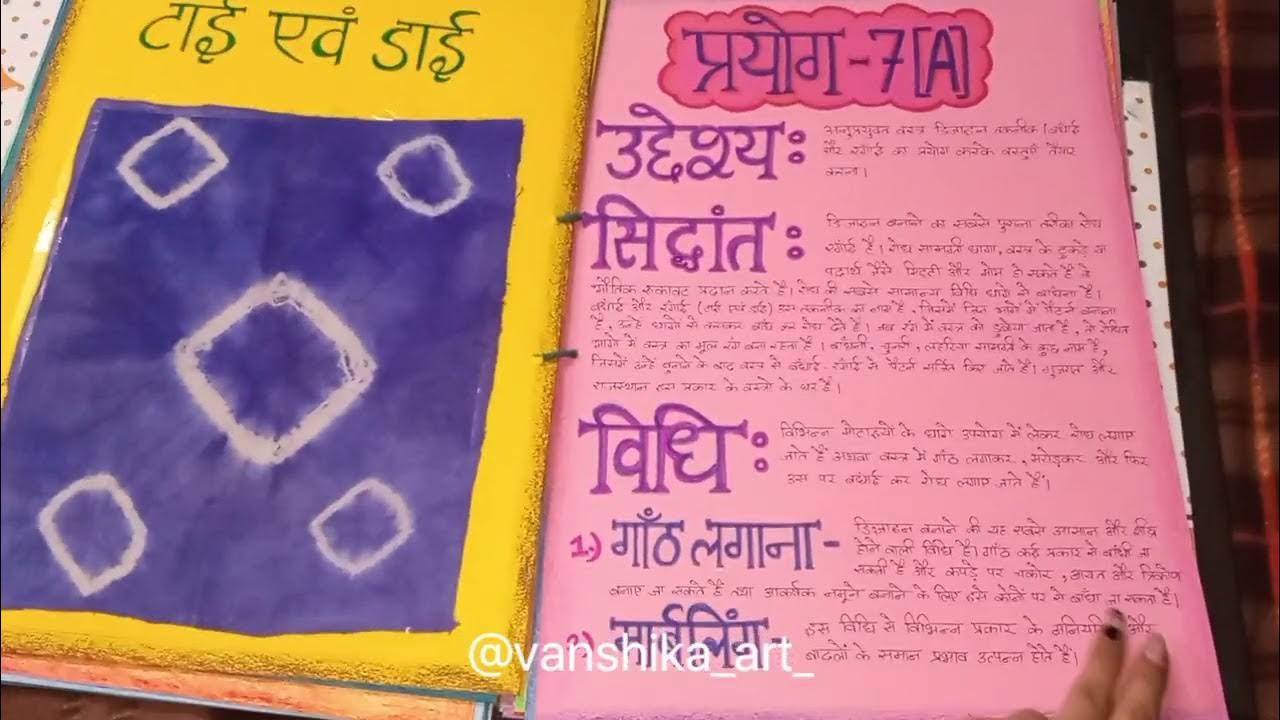 टाई एवं डाई
प्रयोग-7[A]
उद्देश्य: अनुप्रयुक्त वस्त्र डिजाइन तकनीक (बंधाई
और रंगाई का प्रयोग करके वस्तुएँ तैयार
करना।
सिद्धांत: डिजाइन बनाने का सबसे पुराना तरीका रोध
रंगाई है। रोध सामग्री धागा, वस्त्र के टुकड़े या
पदार्थ जैसे मिट्टी और मोम हो सकते हैं जो
भौतिक रुकावट प्रदान करते है। रोध की सबसे सामान्य विधि धागे से बांधना है।
बंधाई और रंगाई (टाई एवं डाई) इस तकनीक का नाम है, जिसमें जिन भागों में पैटर्न बनाना
है, उन्हें धागों से कसकर बांध कर रोध देते हैं। जब रंग में वस्त्र को डुबोया जाता है, तो रोधित
भागों में वस्त्र का मूल रंग बना रहता है। बांधनी, चुनरी, लहरिया सामग्री के कुछ नाम है,
जिसमें उन्हें बुनाने के बाद वस्त्र से बंधाई-रंगाई से पैटर्न सर्जित किए जाते हैं। गुजरात और
राजस्थान इस प्रकार के वस्त्रो के घर हैं।
विधि: विभिन्न मोटाइयों के धागे उपयोग में लेकर रोध लगाए
जाते हैं अथवा वस्त्र में गाँठ लगाकर, मरोड़कर और फिर
उस पर बंधाई कर रोध लगाए जाते हैं।
1.) गाँठ लगाना- डिजाइन बनाने की यह सबसे आसान और शीघ्र
होने वाली विधि है। गाँठ कई प्रकार से बाँधी जा
सकती है और कपड़े पर चकोर, आयत और त्रिकोण
बनाए जा सकते हैं तथा आकर्षक नमूने बनाने के लिए इसे कोने पर से बाँधा जा सकता है।
2) मार्बलिंग- इस विधि से विभिन्न प्रकार के और
बादलों के समान प्रभाव उत्पन्न होते हैं।
@vanshika_art_